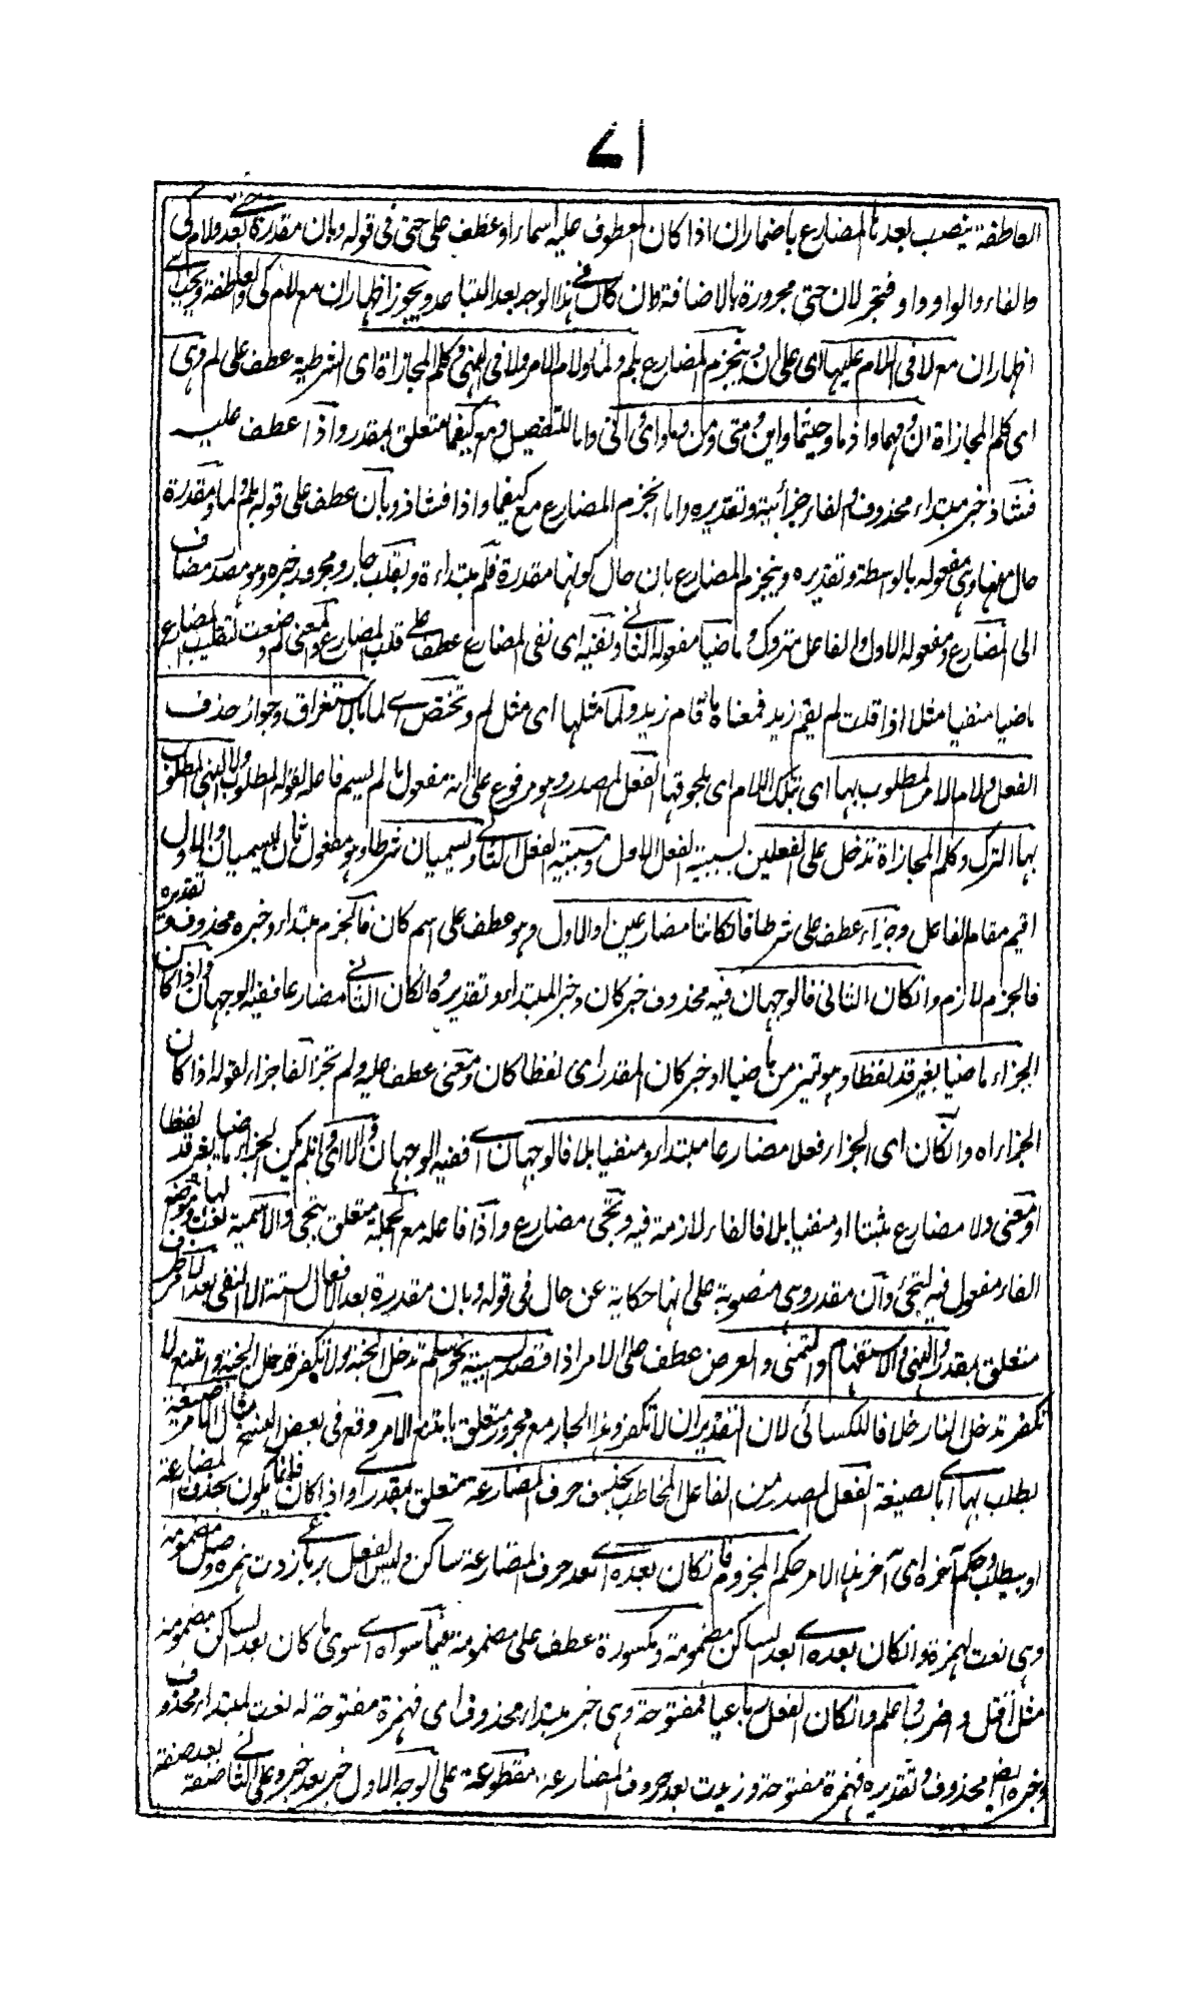 ٧١
العاطفة ينصب بعدها المضارع باضماران اذا كان المعطوف عليه اسما راو عطف على حتى فى قوله وبان مقدرة بعد حتى ولام كى
والفاء والواو واو فتجر لان حتى مجرورة بالاضافة وان كان فى هذا الوجه بعد التباعد ويجوز اظهاران مع لام كى والعاطفة ويجب اى
اظهاران مع لا فى اللام عليها اى على ان وينجزم المضارع بلم ولما ولام الامر ولا فى النهى وكلم المجازاة اى الشرطية عطف على لم وهى
اى كلم المجازاة ان ومهما واذما وحيثما واين ومتى ومن وما واى وانى واما للتفصيل ومع كيفما متعلق بمقدر واذا عطف عليه
فشاذ خبر مبتداء محذوف والفاء جزائية وتقديره واما انجزم المضارع مع كيفما واذا فشاذ وبان عطف على قوله بلم ولما ومقدرة
حال منها وهى مفعوله بالواسطة وتقديره وينجزم المضارع بان حال كونها مقدرة فلم مبتداء ة ولقلب جار ومجرور خبره وهو مصدر مضاف
الى المضارع ومفعوله الاول والفاعل متروك وماضيا مفعوله الثانى ونفيه اى نفى المضارع عطف على قلب المضارع والمعنى لم وضعت لتقليب المضارع
ماضيا منفيا مثل اذا قلت لم يقم زيد فمعناه ما قام زيد ولما مثلها اى مثل لم وتختص اى لما بالاستغراق وجواز حذف
الفعل ولام الامر المطلوب بها اى بتلك اللام اى بلحوقها الفعل المصدر وهو مرفوع على انه مفعول ما لم يسم فاعله لقوله المطلوب ولا النهى المطلوب
بها الترك وكلم المجازاة تدخل على الفعلين لسببية الفعل الاول ومسببية الفعل الثانى ويسميان شرطا وهو مفعول ثان ليسميان والاول
اقيم مقام الفاعل وجزاء عطف على شرطا فان كانتا مضارعين او الاول وهو عطف على اسم كان فالجزم مبتداء وخبره محذوف وتقديره
فالجزم لازم وان كان الثانى فالوجهان فيه محذوف خبر كان وخبر المبتداء وتقديره وان كان الثانى مضارعا ففيه الوجهان واذا كان
الجزاء ماضيا بغير قد لفظا وهو تميز من ماضيا او خبر كان المقدر اى لفظا كان ومعنى عطف عليه ولم تجز الفا جزاء لقوله اذا كان
الجزاء اه وان كان اى الجزاء فعلا مضارعا مبتداء ومنفيا بلا فالوجهان اى ففيه الوجهان والا اى وان لم يكن الجزاء ماضيا بغير قد لفظا
او معنى ولا مضارع مثبتا او منفيا بلا فالفاء لازمة فيه وتجىء مضارع واذا فاعله مع الجملة متعلق بتجى والاسمية نعت لها وموضع
الفاء مفعول فيه لتجىء وان مقدر وهى منصوبة على انها حكاية عن حال فى قوله وبان مقدرة بعد الافعال الستة الا النفى بعد الامر ظرف
متعلق بمقدر والنهى والاستفهام والتمنى والعرض عطف على الامر اذا قصد السببية نحو اسلم تدخل الجنة ولا تكفر تدخل الجنة وامتنع لا
تكفر تدخل النار خلافا للكسائى لان التقدير ان لا تكفر وهذا الجار مع مجرور متعلق بامتنع الامر وقع فى بعض النسخ مثال الامر صيغة
يطلب بها اى بالصيغة الفعل المصدر من الفاعل المخاطب بحذف حرف المضارعة متعلق بمقدر اى واذا كان فانما يكون بحذف المضارعة
او بيطلب وحكم آخره اى آخر هذا الامر حكم المجزوم فان كان بعده اى بعد حرف المضارعة ساكن وليس الفعل برباعى زدت همزة وصل مضمومة
وهى نعت لهمزة وان كان بعده اى بعد الساكن مضمومة ومكسورة عطف على مضمومة فيما سواه اى سوى ما كان بعد الساكن مضمومة
مثل اقتل واضرب واعلم وان كان الفعل رباعيا فمفتوحة وهى خبر مبتداء محذوف اى فهمزة مفتوحة له نعت لمبتداء محذوف
وخبره ايضا محذوف وتقديره فهمزة مفتوحة وزيدت بعد حروف المضارعة مقطوعة على الوجه الاول خبر بعد خبر وعلى الثانى صفة بعد صفة